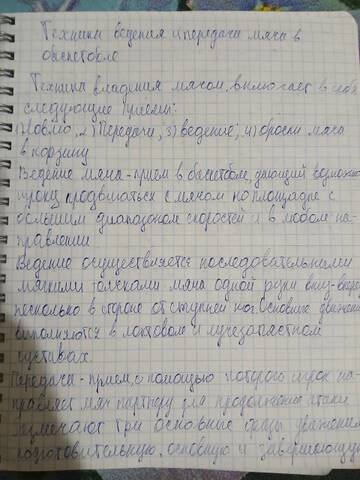 Техника ведения и передачи мяча в
баскетболе
Техника владения мячом, включает в себя
следующие приёмы:
1) Ловлю, 2) Передачи, 3) ведение, 4) броски мяча
в корзину
Ведение мяча - прием в баскетболе, дающий возможно
игроку продвигаться с мячом по площадке с
большим диапазоном скоростей и в любом на-
правлении
Ведение осуществляется последовательными
мягкими толчками мяча одной руки вниз-вперед
несколько в стороне от ступней ног. Основные движения
выполняются в локтевом и лучезапястном
суставах
Передачи - прием, с помощью которого игрок на-
правляет мяч партнеру для продолжения атаки
Различают три основные фазы
подготовительную, основную и завершающую